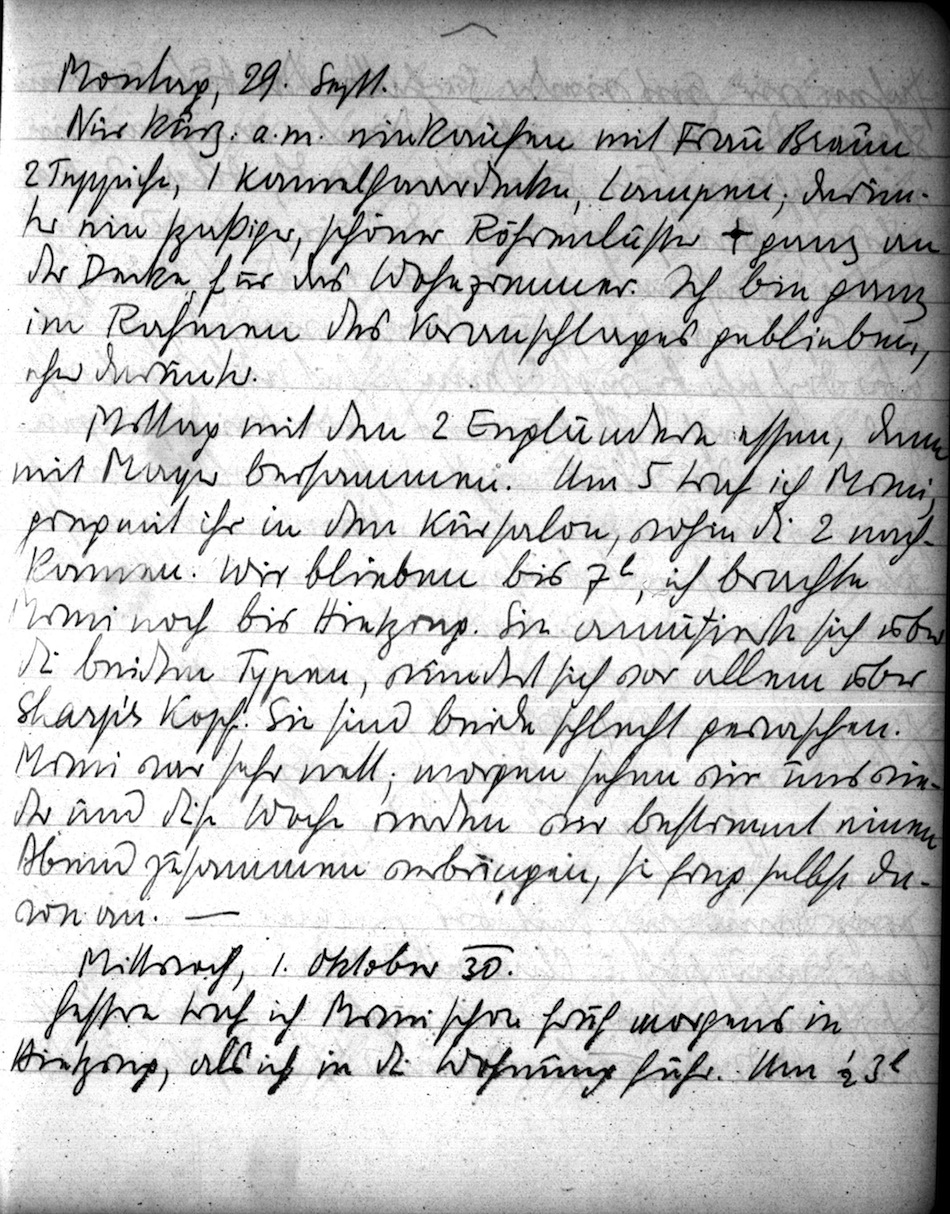 Montag, 29. Sept.
Nur kurz: a.m. einkaufen mit Frau Braun
2 Teppiche, 1 Kamelhaardecke, Lampen; darun-
ter ein spaßiger, schöner Röhrenluster ganz an
der Decke für das Wohnzimmer. Ich bin ganz
im Rahmen des Voranschlages geblieben,
eher darunter.
Mittag mit den 2 Engländern essen, dann
mit Mayer beisammen. Um 5 traf ich Mimi,
ging mit ihr in den Kursalon, wohin die 2 nach-
kamen. Wir blieben bis 7h, ich brachte
Mimi noch bis Hietzing. Sie amüsierte sich über
die beiden Typen, wundert sich vor allem über
Sharp's Kopf. Sie sind beide schlecht gewaschen.
Mimi war sehr nett; morgen sehen wir uns wie-
der und diese Woche werden wir bestimmt einen
Abend zusammen verbringen, sie fing selbst da-
von an. —
Mittwoch, 1. Oktober 30.
Gestern traf ich Mimi schon früh morgens in
Hietzing, als ich in die Wohnung fuhr. Um ½ 3h